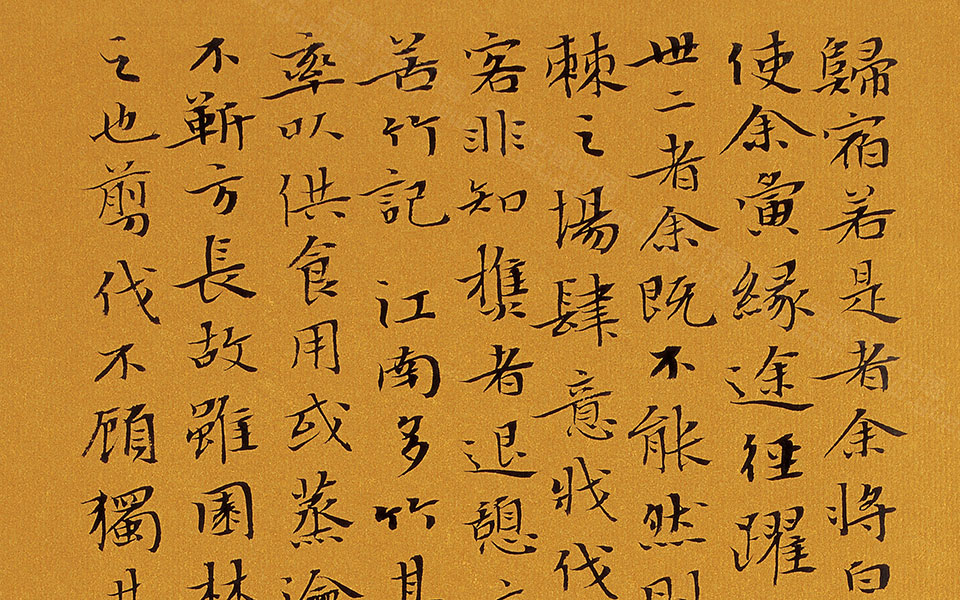 歸宿若是者余將白
使余夤緣途徑躍
世二者余既不能然則
棘之場肆意戕伐
客非知樵者退憩
苦竹記 江南多竹其
率以供食用或蒸瀹
不靳方長故雖園林
之也剪伐不顧獨其